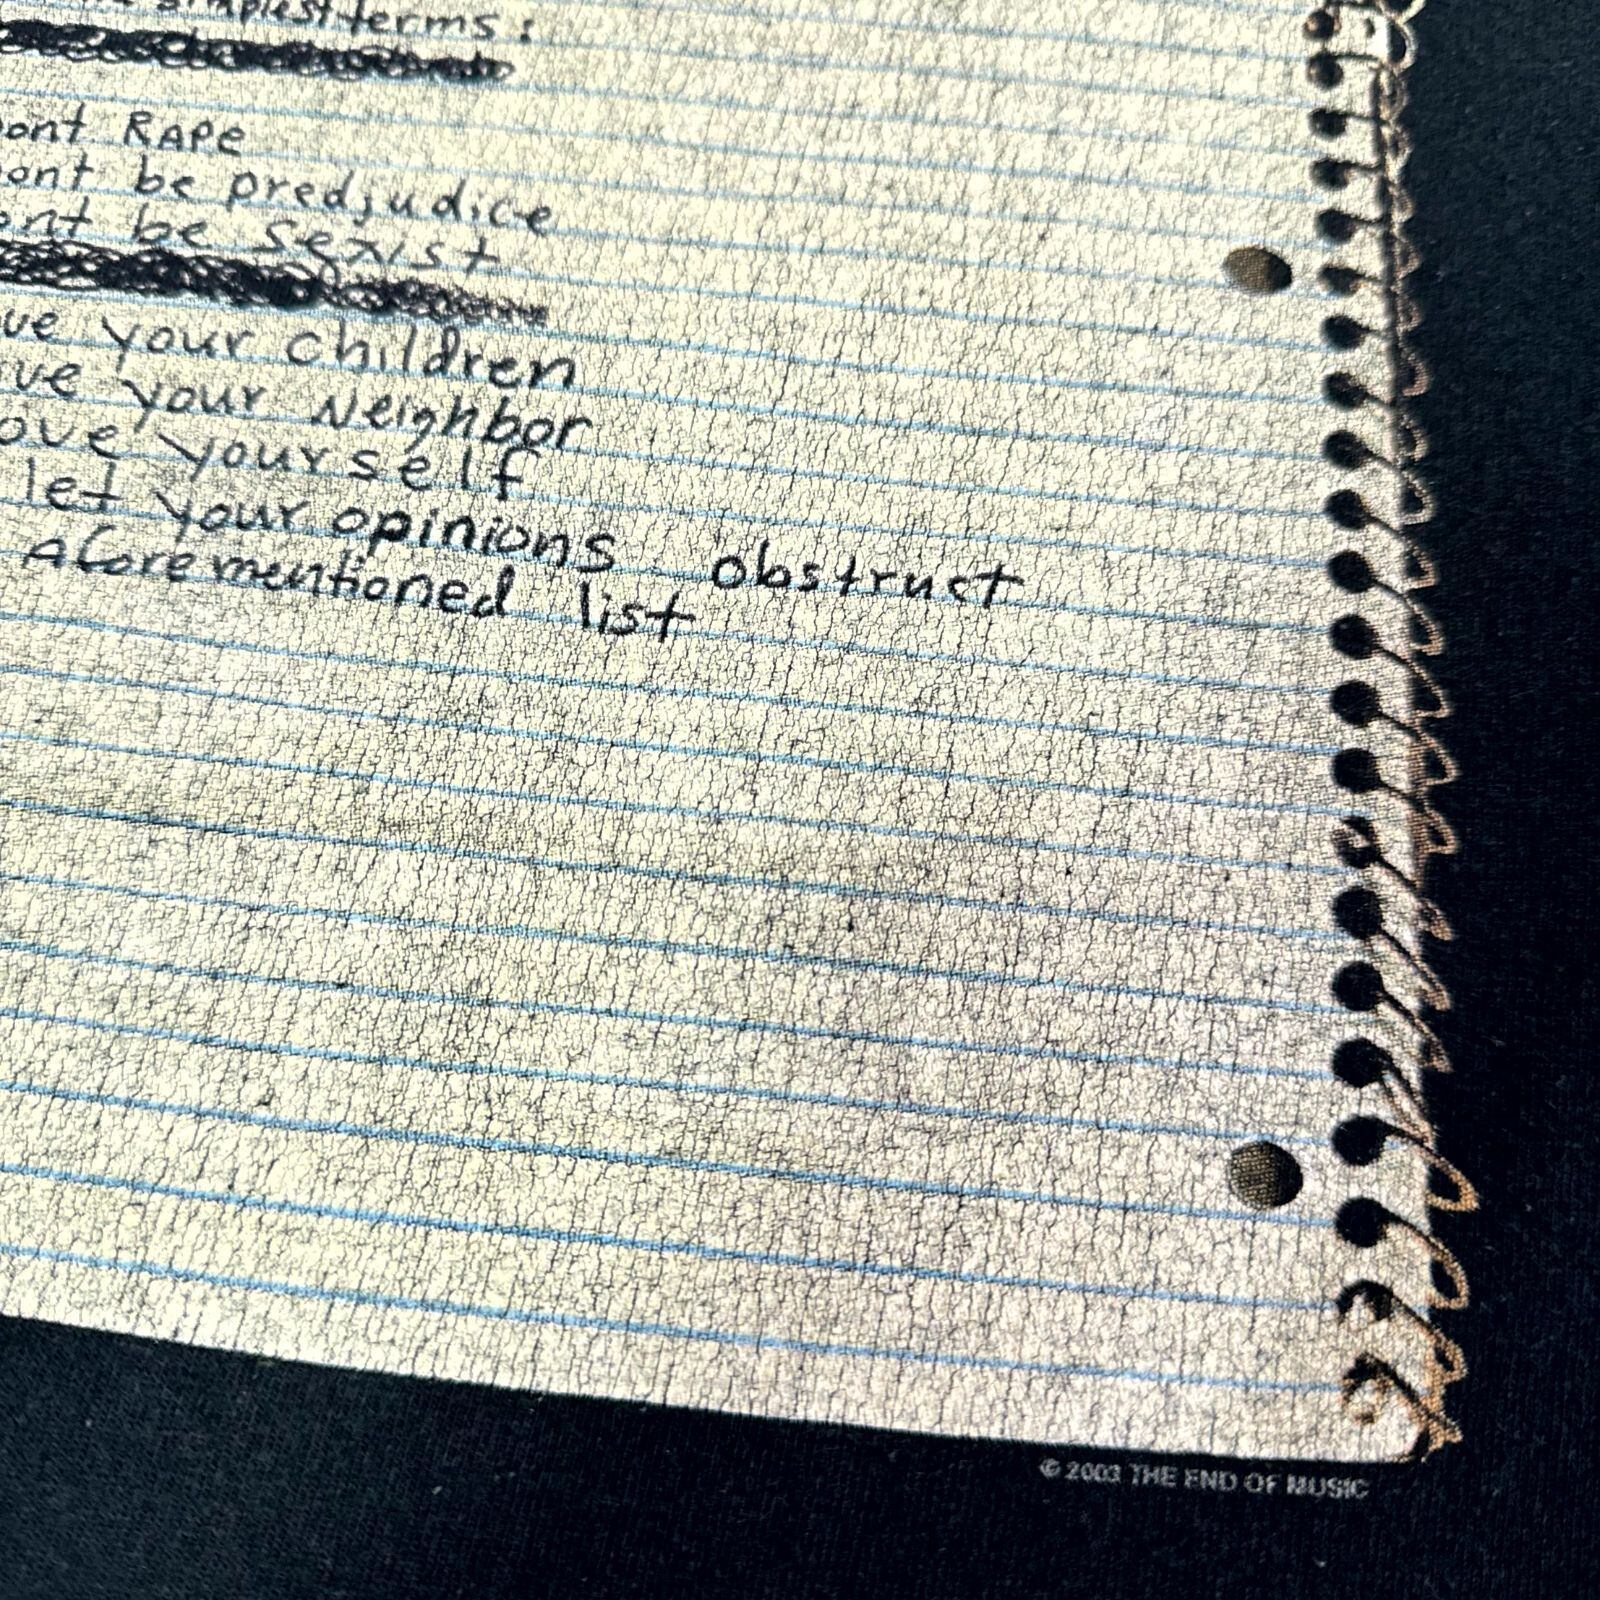 simplest terms:
ont RAPE
ont be predjudice
ont be sexist
ve your children
ve your Neighbor
ove yourself
let your opinions obstruct
Aforementioned list
© 2003 THE END OF MUSIC